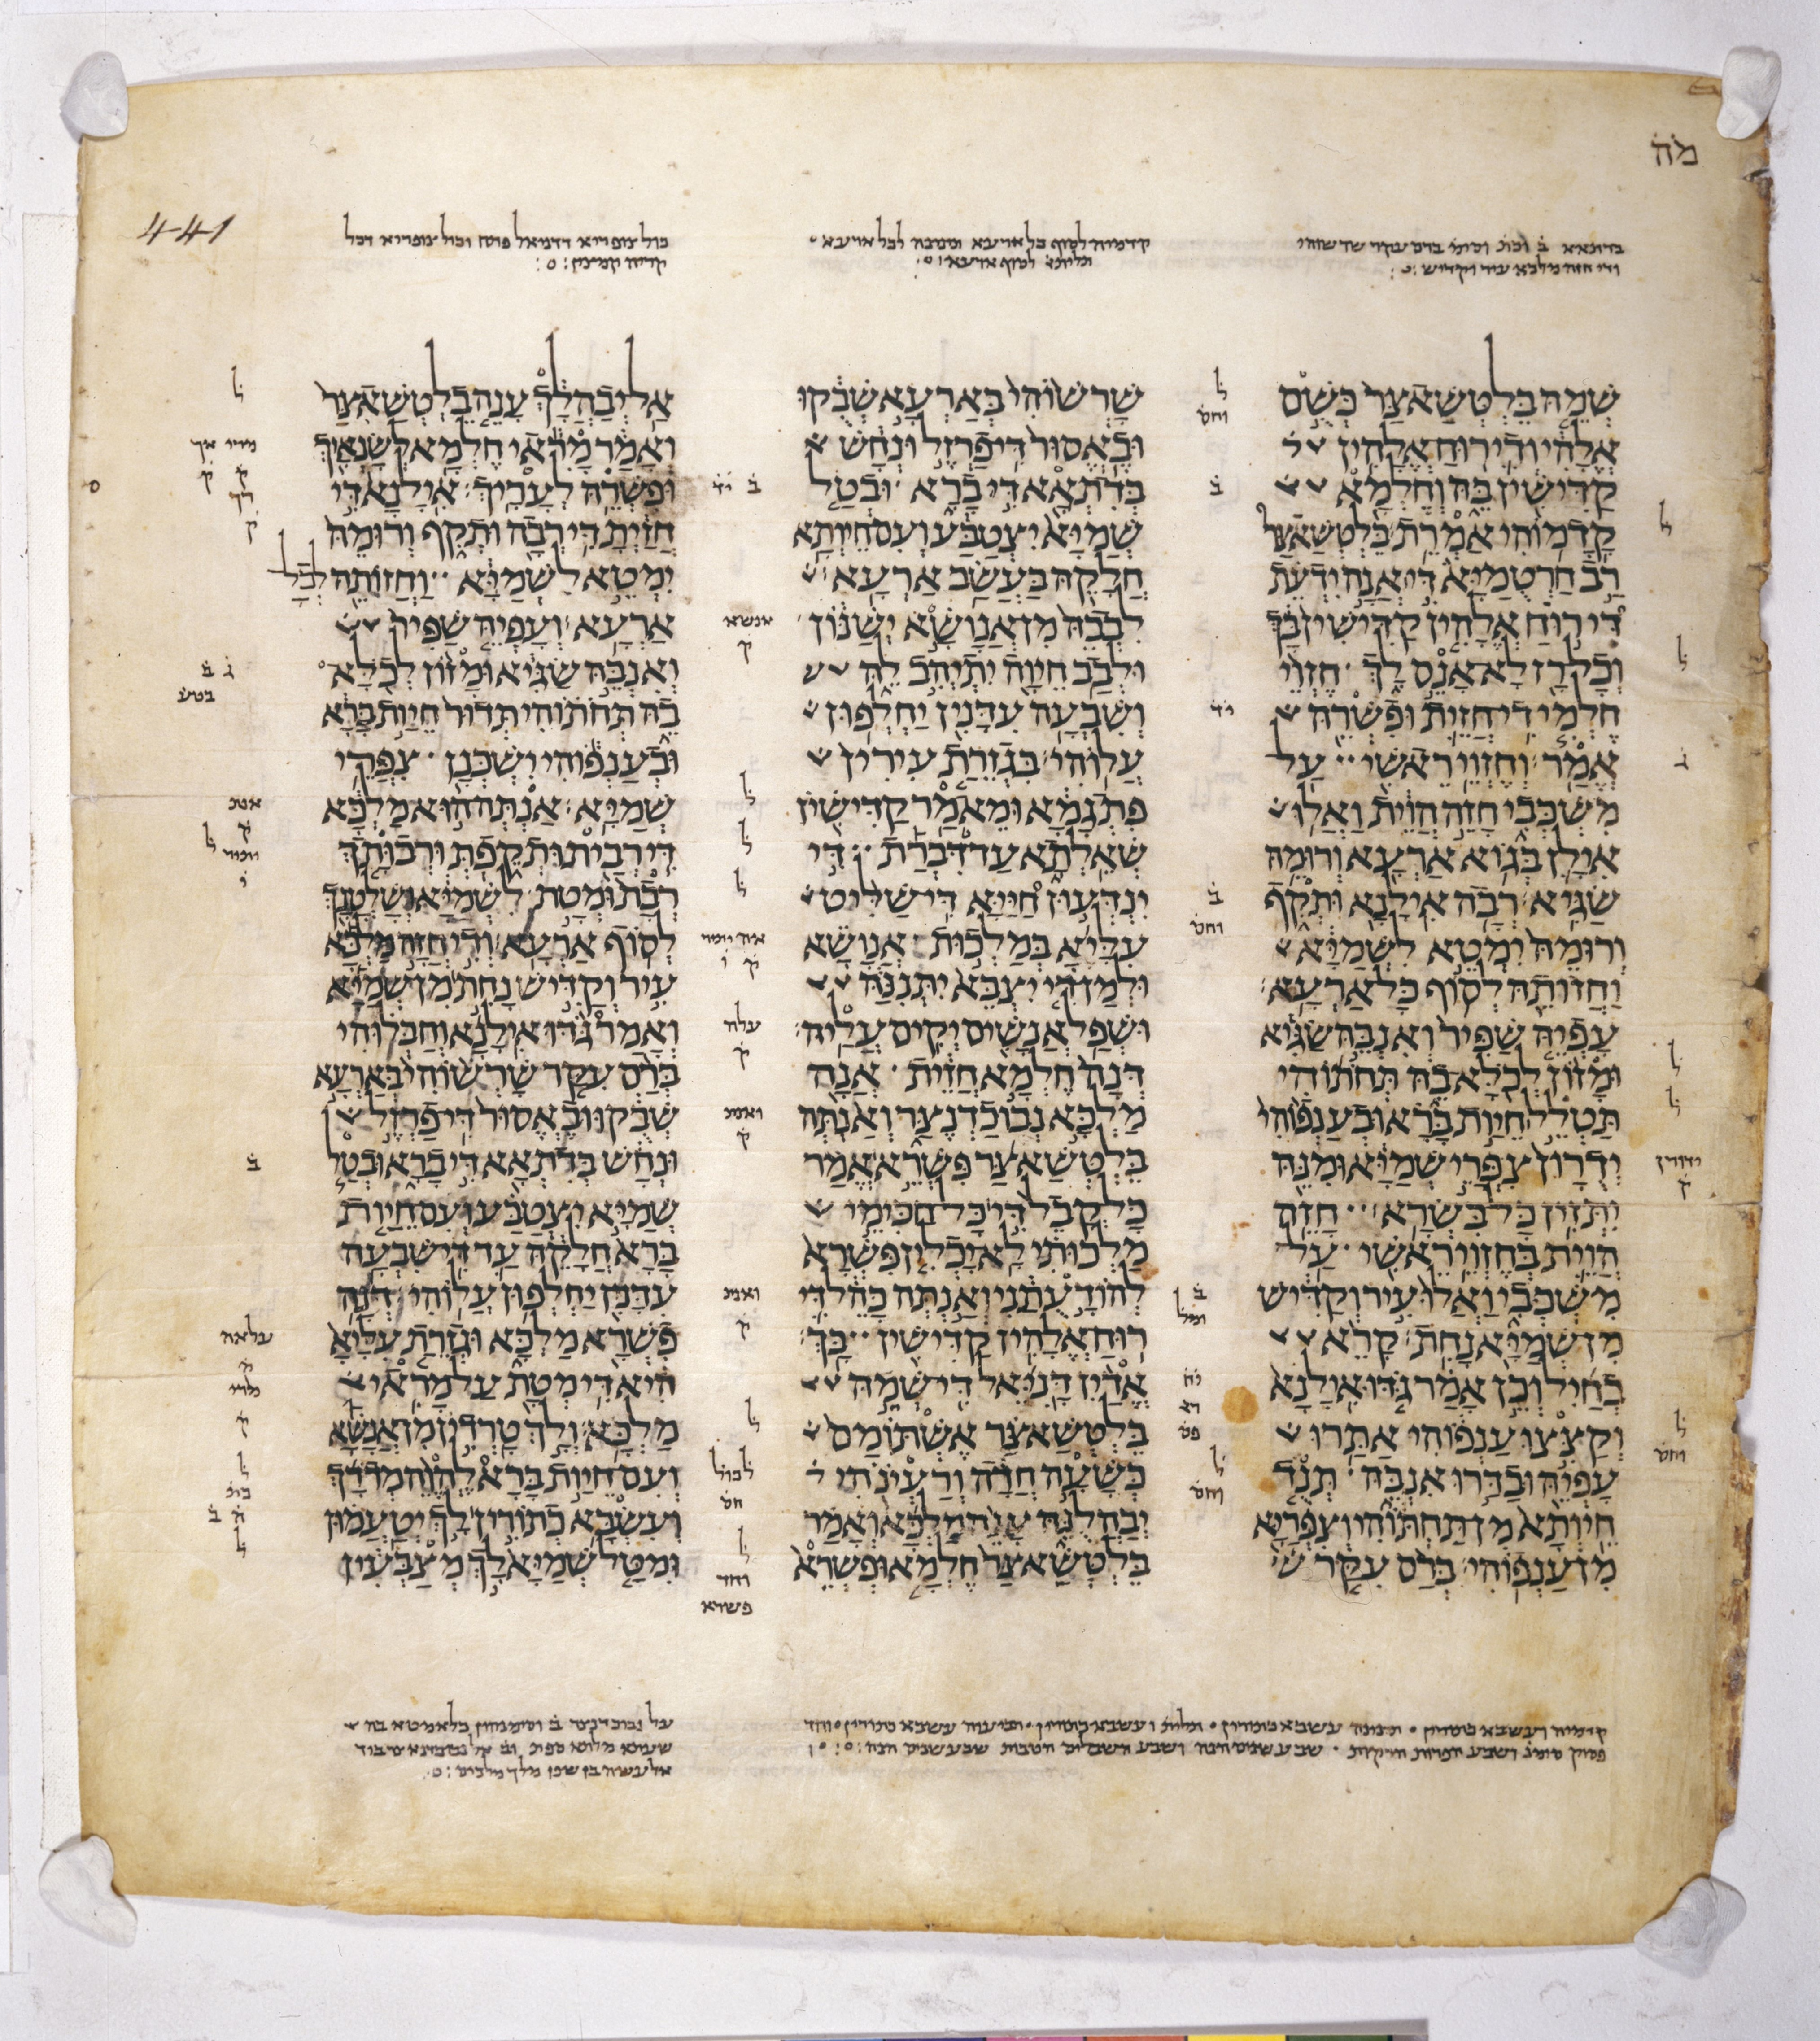 מה
441
בדתאא ב וכת וסימ ברם עקר שרשוהי
ודי חזה מלכא עיר וקדיש
קדמיה לסוף כל ארעא ותנינה לכל ארעא
לסוף ארעא
דדניאל פתח וכול צופריא דכל
קריה קמיצין
שְׁמֵהּ בֵּלְטְשַׁאצַּר כְּשֻׁם
אֱלָהִי וְדִי רוּחַ אֱלָהִין
קַדִּישִׁין בֵּהּ וְחֶלְמָא
קָדָמוֹהִי אַמְרֵת בֵּלְטְשַׁאצַּר
רַב חַרְטֻמַיָּא דִּי אֲנָה יִדְעֵת
דִּי רוּחַ אֱלָהִין קַדִּישִׁין בָּךְ
וְכָל רָז לָא אָנֵס לָךְ חֶזְוֵי
חֶלְמִי דִי חֲזֵית וּפִשְׁרֵהּ
אֱמַר וְחֶזְוֵי רֵאשִׁי עַל
מִשְׁכְּבִי חָזֵה הֲוֵית וַאֲלוּ
אִילָן בְּגוֹא אַרְעָא וְרוּמֵהּ
שַׂגִּיא רְבָה אִילָנָא וּתְקִף
וְרוּמֵהּ יִמְטֵא לִשְׁמַיָּא
וַחֲזוֹתֵהּ לְסוֹף כָּל אַרְעָא
עָפְיֵהּ שַׁפִּיר וְאִנְבֵּהּ שַׂגִּיא
וּמָזוֹן לְכֹלָּא בֵהּ תְּחֹתוֹהִי
תַּטְלֵל חֵיוַת בָּרָא וּבְעַנְפוֹהִי
יְדֻרָון צִפֲּרֵי שְׁמַיָּא וּמִנֵּהּ
יִתְּזִין כָּל בִּשְׂרָא חָזֵה
הֲוֵית בְּחֶזְוֵי רֵאשִׁי עַל
מִשְׁכְּבִי וַאֲלוּ עִיר וְקַדִּישׁ
מִן שְׁמַיָּא נָחִת קָרֵא
בְחַיִל וְכֵן אָמַר גֹּדּוּ אִילָנָא
וְקַצִּצוּ עַנְפוֹהִי אַתַּרוּ
עָפְיֵהּ וּבַדַּרוּ אִנְבֵּהּ תְּנֻד
חֵיוְתָא מִן תַּחְתּוֹהִי וְצִפְּרַיָּא
מִן עַנְפוֹהִי בְּרַם עִקַּר
שָׁרְשׁוֹהִי בְּאַרְעָא שְׁבֻקוּ
וּבֶאֱסוּר דִּי פַרְזֶל וּנְחָשׁ
בְּדִתְאָא דִּי בָרָא וּבְטַל
שְׁמַיָּא יִצְטַבַּע וְעִם חֵיוְתָא
חֲלָקֵהּ בַּעֲשַׂב אַרְעָא
לִבְבֵהּ מִן אֲנָושָׁא יְשַׁנּוֹן
וּלְבַב חֵיוָה יִתְיְהִב לֵהּ
וְשִׁבְעָה עִדָּנִין יַחְלְפוּן
עֲלוֹהִי בִּגְזֵרַת עִירִין
פִּתְגָמָא וּמֵאמַר קַדִּישִׁין
שְׁאֵלְתָא עַד דִּבְרַת דִּי
יִנְדְּעוּן חַיַּיָּא דִּי שַׁלִּיט
עִלָּיָא בְּמַלְכוּת אֲנָושָׁא
וּלְמַן דִּי יִצְבֵּא יִתְּנִנַּהּ
וּשְׁפַל אֲנָשִׁים יְקִים עֲלַיהּ
דְּנָה חֶלְמָא חֲזֵית אֲנָה
מַלְכָּא נְבוּכַדְנֶצַּר וְאַנְתְּה
בֵּלְטְשַׁאצַּר פִּשְׁרֵא אֱמַר
כָּל קֳבֵל דִּי כָּל חַכִּימֵי
מַלְכוּתִי לָא יָכְלִין פִּשְׁרָא
לְהוֹדָעֻתַנִי וְאַנְתְּה כָּהֵל דִּי
רוּחַ אֱלָהִין קַדִּישִׁין בָּךְ
אֱדַיִן דָּנִיֵּאל דִּי שְׁמֵהּ
בֵּלְטְשַׁאצַּר אֶשְׁתּוֹמַם
כְּשָׁעָה חֲדָה וְרַעְיֹנֹהִי
יְבַהֲלֻנֵּהּ עָנֵה מַלְכָּא וְאָמַר
בֵּלְטְשַׁאצַּר חֶלְמָא וּפִשְׁרֵא
אַל יְבַהֲלָךְ עָנֵה בֵלְטְשַׁאצַּר
וְאָמַר מָרִאי חֶלְמָא לְשָׂנְאָיךְ
וּפִשְׁרֵהּ לְעָרָיךְ אִילָנָא דִּי
חֲזַיְתָ דִּי רְבָה וּתְקִף וְרוּמֵהּ
יִמְטֵא לִשְׁמַיָּא וַחֲזוֹתֵהּ לְכָל
אַרְעָא וְעָפְיֵהּ שַׁפִּיר
וְאִנְבֵּהּ שַׂגִּיא וּמָזוֹן לְכֹלָּא
בֵהּ תְּחֹתוֹהִי תְּדוּר חֵיוַת בָּרָא
וּבְעַנְפוֹהִי יִשְׁכְּנָן צִפֲּרֵי
שְׁמַיָּא אַנְתְּה הוּא מַלְכָּא
דִּי רְבַית וּתְקֵפְתְּ וּרְבוּתָךְ
רְבָת וּמְטָת לִשְׁמַיָּא וְשָׁלְטָנָךְ
לְסוֹף אַרְעָא וְדִי חֲזָה מַלְכָּא
עִיר וְקַדִּישׁ נָחִת מִן שְׁמַיָּא
וְאָמַר גֹּדּוּ אִילָנָא וְחַבְּלוּהִי
בְּרַם עִקַּר שָׁרְשׁוֹהִי בְּאַרְעָא
שְׁבֻקוּ וּבֶאֱסוּר דִּי פַרְזֶל
וּנְחָשׁ בְּדִתְאָא דִּי בָרָא וּבְטַל
שְׁמַיָּא יִצְטַבַּע וְעִם חֵיוַת
בָּרָא חֲלָקֵהּ עַד דִּי שִׁבְעָה
עִדָּנִין יַחְלְפוּן עֲלוֹהִי דְּנָה
פִשְׁרָא מַלְכָּא וּגְזֵרַת עִלָּיָא
הִיא דִּי מְטָת עַל מָרִאי
מַלְכָּא וְלָךְ טָרְדִין מִן אֲנָשָׁא
וְעִם חֵיוַת בָּרָא לֶהֱוֵה מְדֹרָךְ
וְעִשְׂבָּא כְתוֹרִין לָךְ יְטַעֲמוּן
וּמִטַּל שְׁמַיָּא לָךְ מְצַבְּעִין